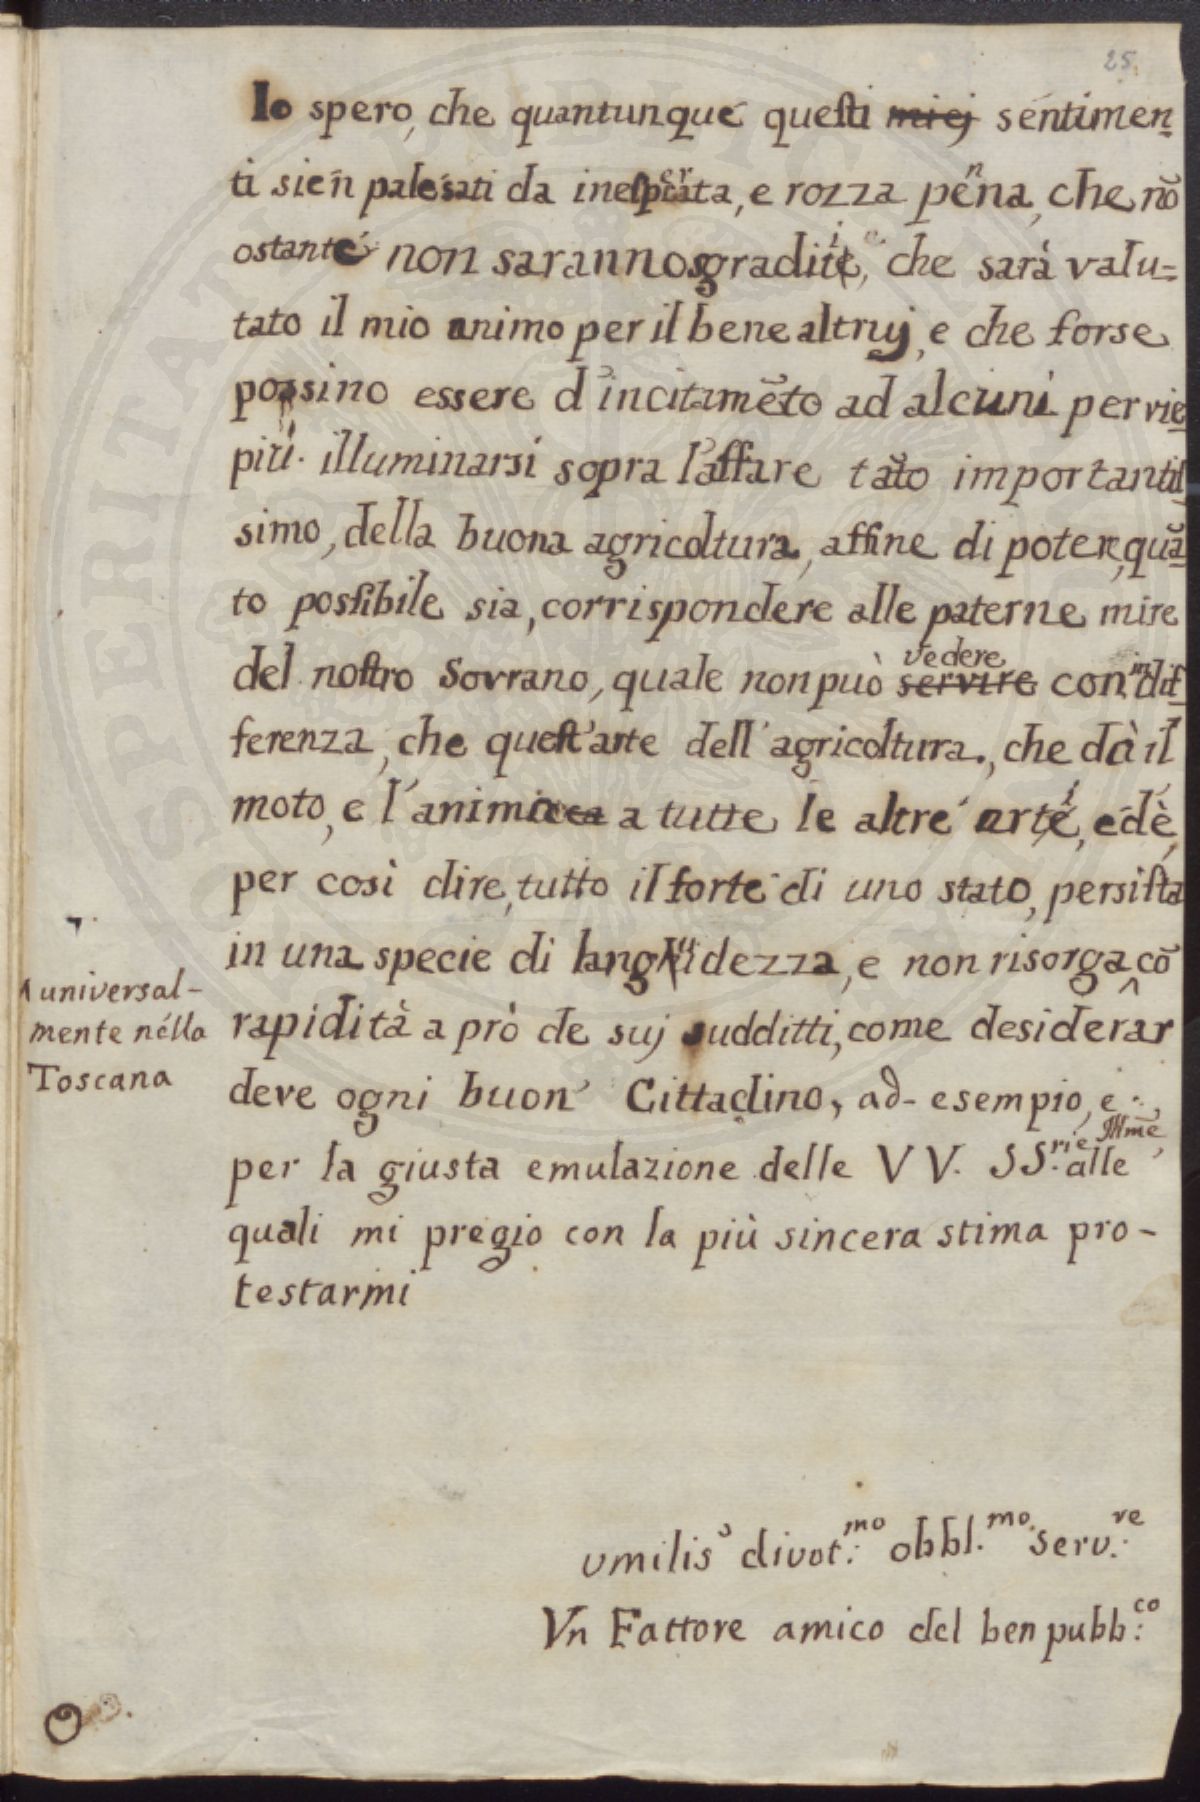 25
Io spero, che quantunque questi miej sentimen
ti sien palesati da inesperta, e rozza penna, che nõ
ostante non saranno sgraditi, che sarà valu=
tato il mio animo per il bene altruj, e che forse
possino essere d'incitamẽto ad alcuni per vie
più illuminarsi sopra l'affare tãto importantis
simo, della buona agricoltura, affine di potere, quã
to possibile sia, corrispondere alle paterne mire
vedere
del nostro Sovrano, quale non può servire con indif
ferenza, che quest'arte dell'agricoltura, che dà il
moto, e l'anima a tutte le altre arti, ed è,
per così dire, tutto il forte di uno stato, persista
in una specie di languidezza, e non risorga ^ cõ
^ universal-
mente nella
Toscana
rapidità a prò de suj sudditti, come desiderar
deve ogni buon' Cittadino, ad esempio, e
per la giusta emulazione delle VV. SS.rie Illme, alle
quali mi pregio con la più sincera stima pro-
testarmi
umilis' divot:mo obbl.mo serv:re
Un Fattore amico del ben pubb:co